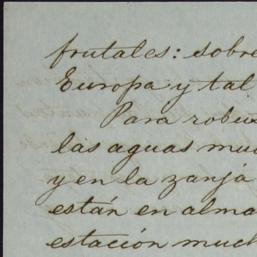 frutales: sobre
Europa y tal
Para robus
las aguas muc
y en la zanja
están en alma
estación much